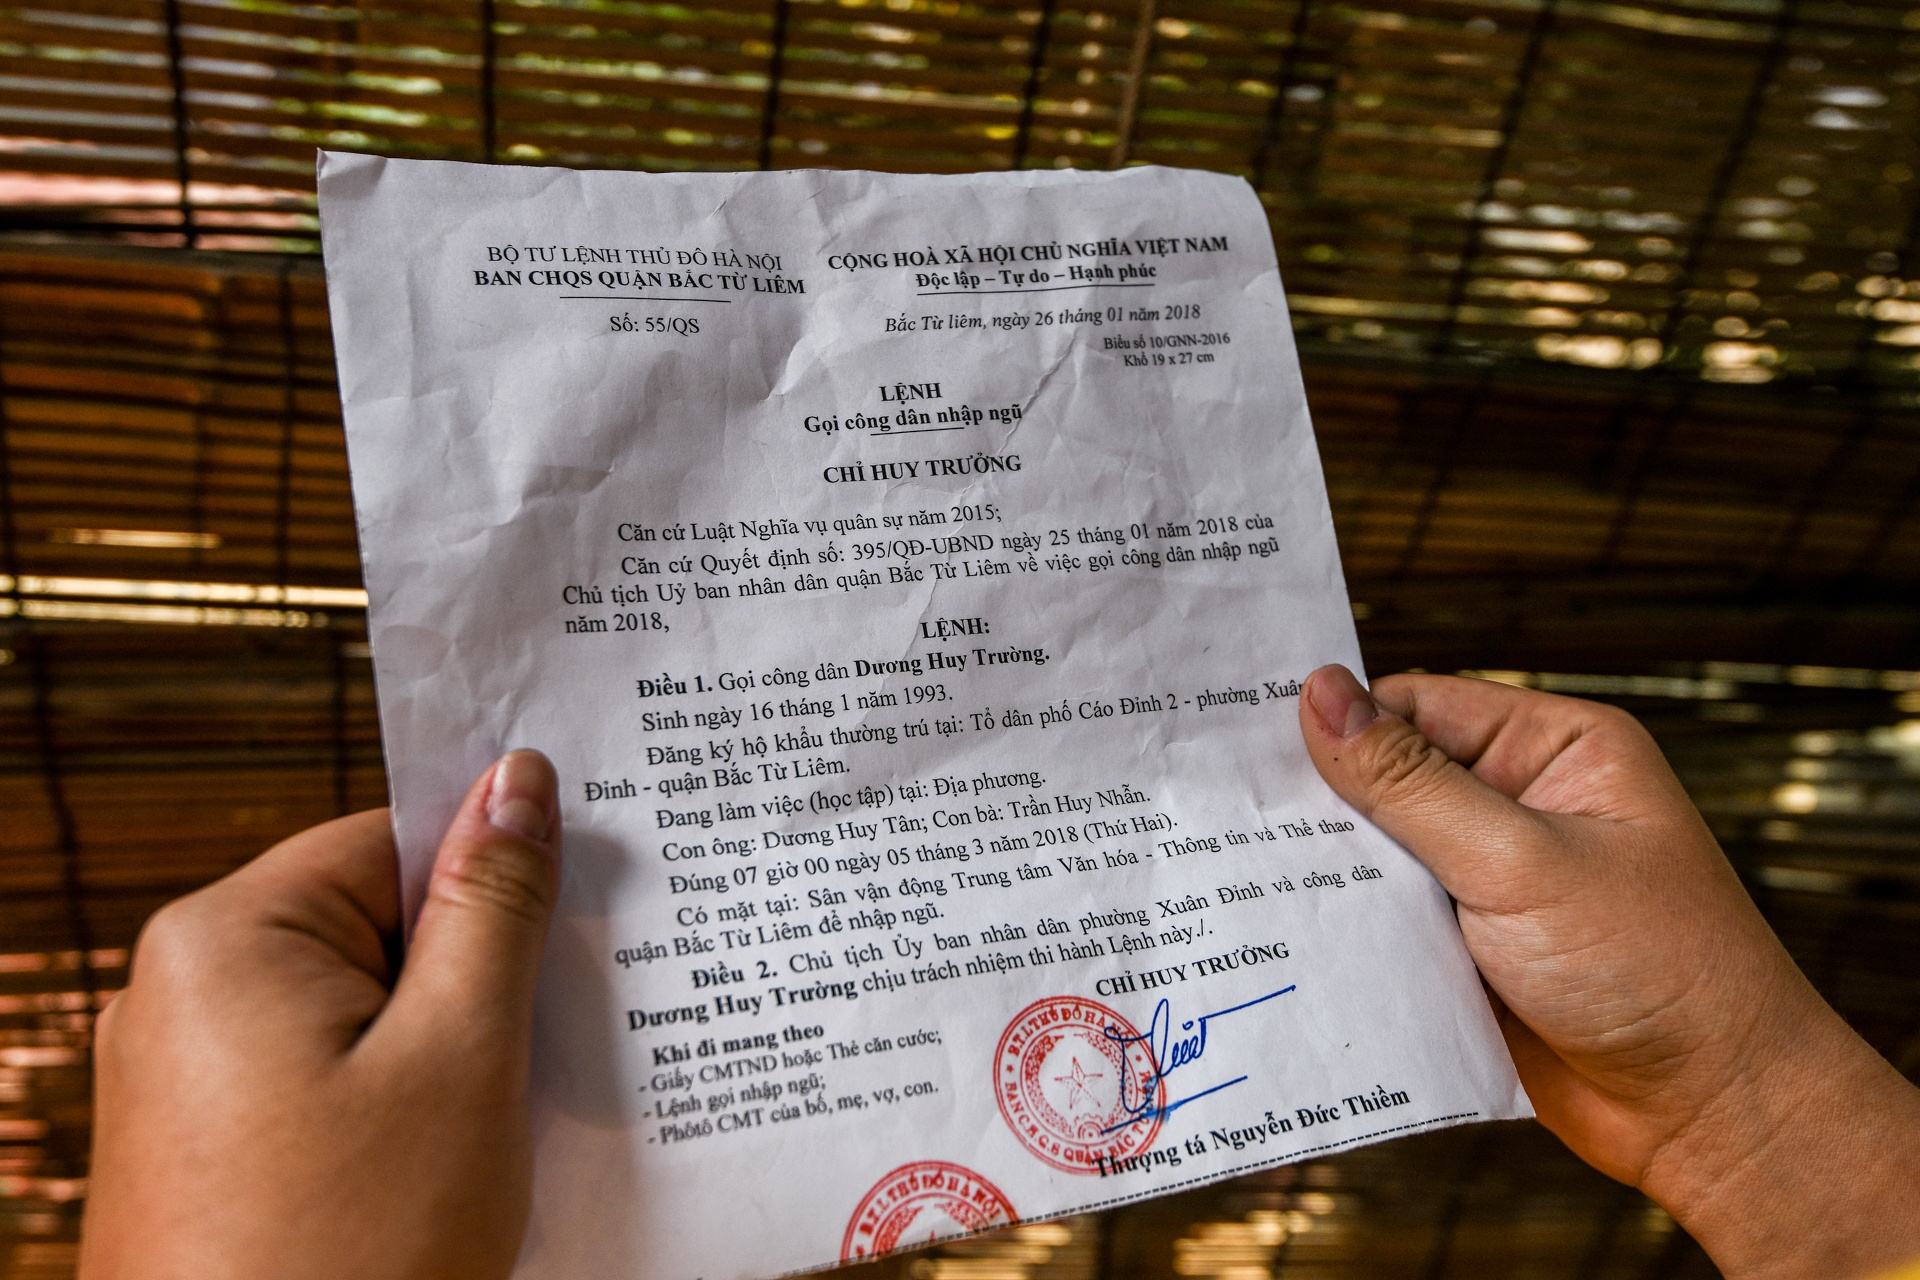 BỘ TƯ LỆNH THỦ ĐÔ HÀ NỘI
BAN CHQS QUẬN BẮC TỪ LIÊM
Số: 55/QS
CỘNG HOÀ XÃ HỘI CHỦ NGHĨA VIỆT NAM
Độc lập – Tự do – Hạnh phúc
Bắc Từ liêm, ngày 26 tháng 01 năm 2018
Biểu số 10/GNN-2016
Khổ 19 x 27 cm
LỆNH
Gọi công dân nhập ngũ
CHỈ HUY TRƯỞNG
Căn cứ Luật Nghĩa vụ quân sự năm 2015;
Căn cứ Quyết định số: 395/QĐ-UBND ngày 25 tháng 01 năm 2018 của
Chủ tịch Uỷ ban nhân dân quận Bắc Từ Liêm về việc gọi công dân nhập ngũ
năm 2018,
LỆNH:
Điều 1. Gọi công dân Dương Huy Trường.
Sinh ngày 16 tháng 1 năm 1993.
Đăng ký hộ khẩu thường trú tại: Tổ dân phố Cáo Đỉnh 2 - phường Xuân
Đỉnh - quận Bắc Từ Liêm.
Đang làm việc (học tập) tại: Địa phương.
Con ông: Dương Huy Tân; Con bà: Trần Huy Nhẫn.
Đúng 07 giờ 00 ngày 05 tháng 3 năm 2018 (Thứ Hai).
Có mặt tại: Sân vận động Trung tâm Văn hóa - Thông tin và Thể thao
quận Bắc Từ Liêm để nhập ngũ.
Điều 2. Chủ tịch Ủy ban nhân dân phường Xuân Đỉnh và công dân
Dương Huy Trường chịu trách nhiệm thi hành Lệnh này./.
Khi đi mang theo
- Giấy CMTND hoặc Thẻ căn cước;
- Lệnh gọi nhập ngũ;
- Phôtô CMT của bố, mẹ, vợ, con.
CHỈ HUY TRƯỞNG
B.T.L THỦ ĐÔ HÀ NỘI
BAN C.H.Q.S QUẬN BẮC TỪ
Thượng tá Nguyễn Đức Thiềm
B.T.L THỦ ĐÔ HÀ NỘI